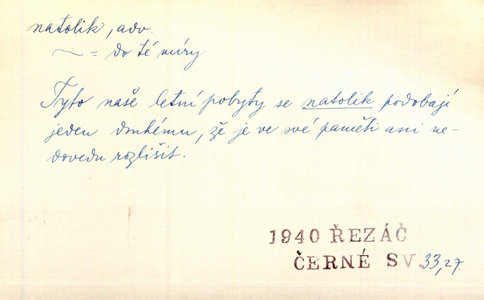 natolik, adv.
~ = do té míry
Tyto naše letní pobyty se natolik podobají
jeden druhému, že je ve své paměti ani ne-
dovedu rozlišit.
1940 ŘEZÁČ
ČERNÉ SV. 33,27.